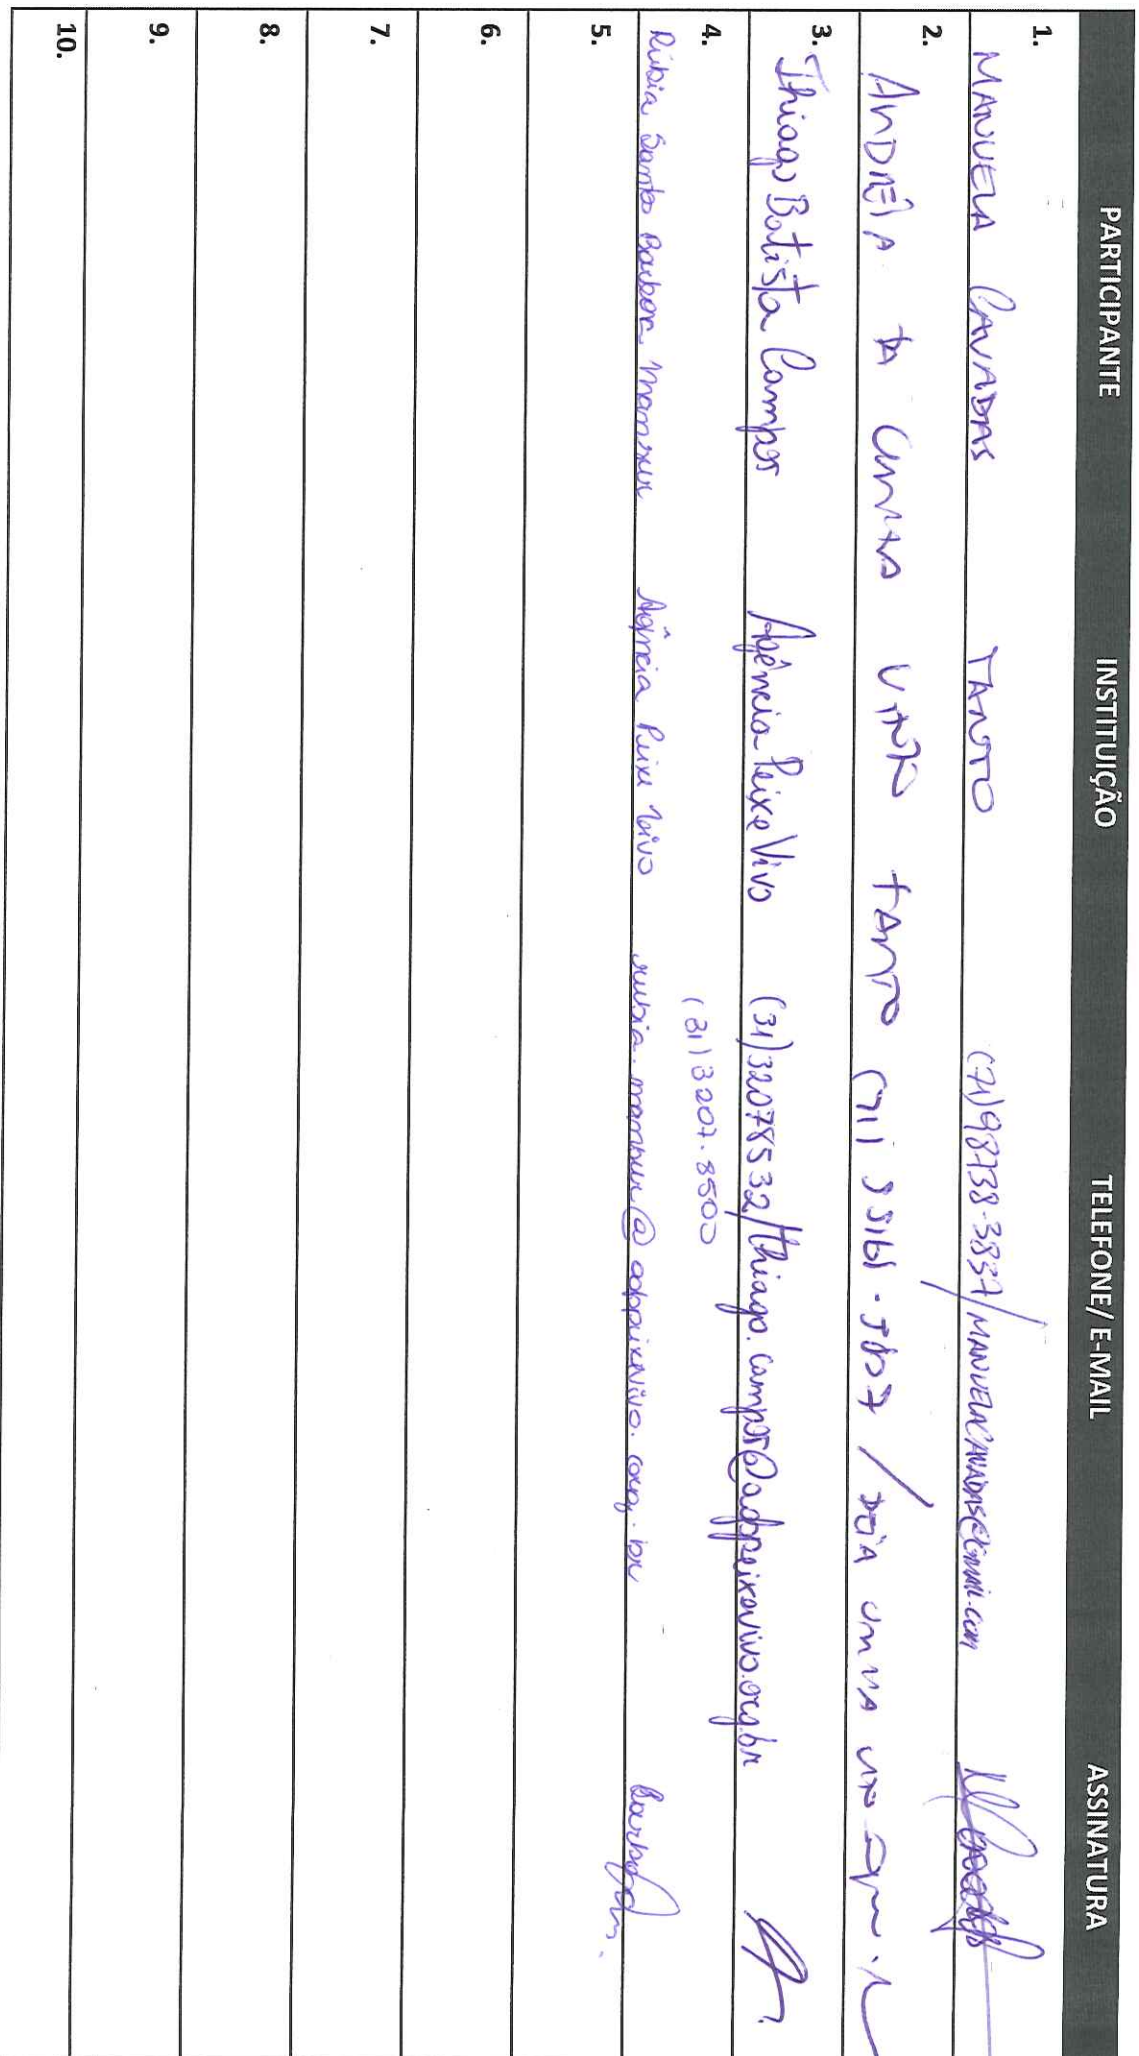 PARTICIPANTE INSTITUIÇÃO TELEFONE/ E-MAIL ASSINATURA
1. MANUELA CAVADAS TANTO (71)98738-3837/MANUELACAVADAS@GMAIL.COM
2. ANDRÉIA DA CUNHA TANTO (71)
3. Thiago Batista Campos Agência Peixe Vivo (31)32078532/thiago.campos@agbpeixevivo.org.br
(31)3207.8500
4. Rúbia Santos Barbosa Mansur Agência Peixe Vivo rubia.mansur@agbpeixevivo.org.br
5.
6.
7.
8.
9.
10.